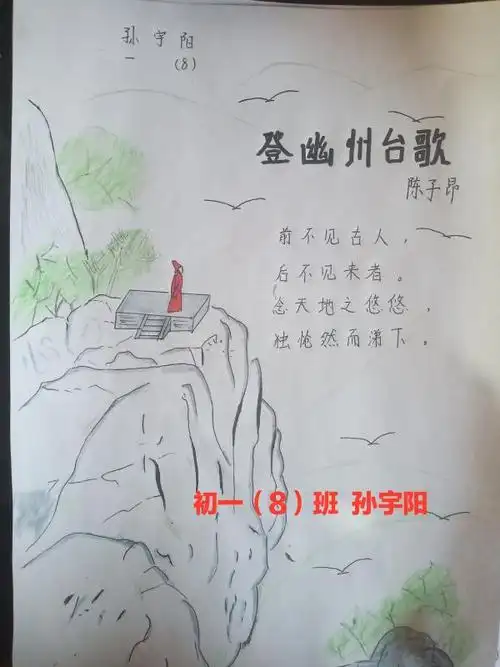 孙宇阳
一 (8)
登幽州台歌
陈子昂
前不见古人，
后不见来者。
念天地之悠悠，
独怆然而涕下。
初一（8）班 孙宇阳